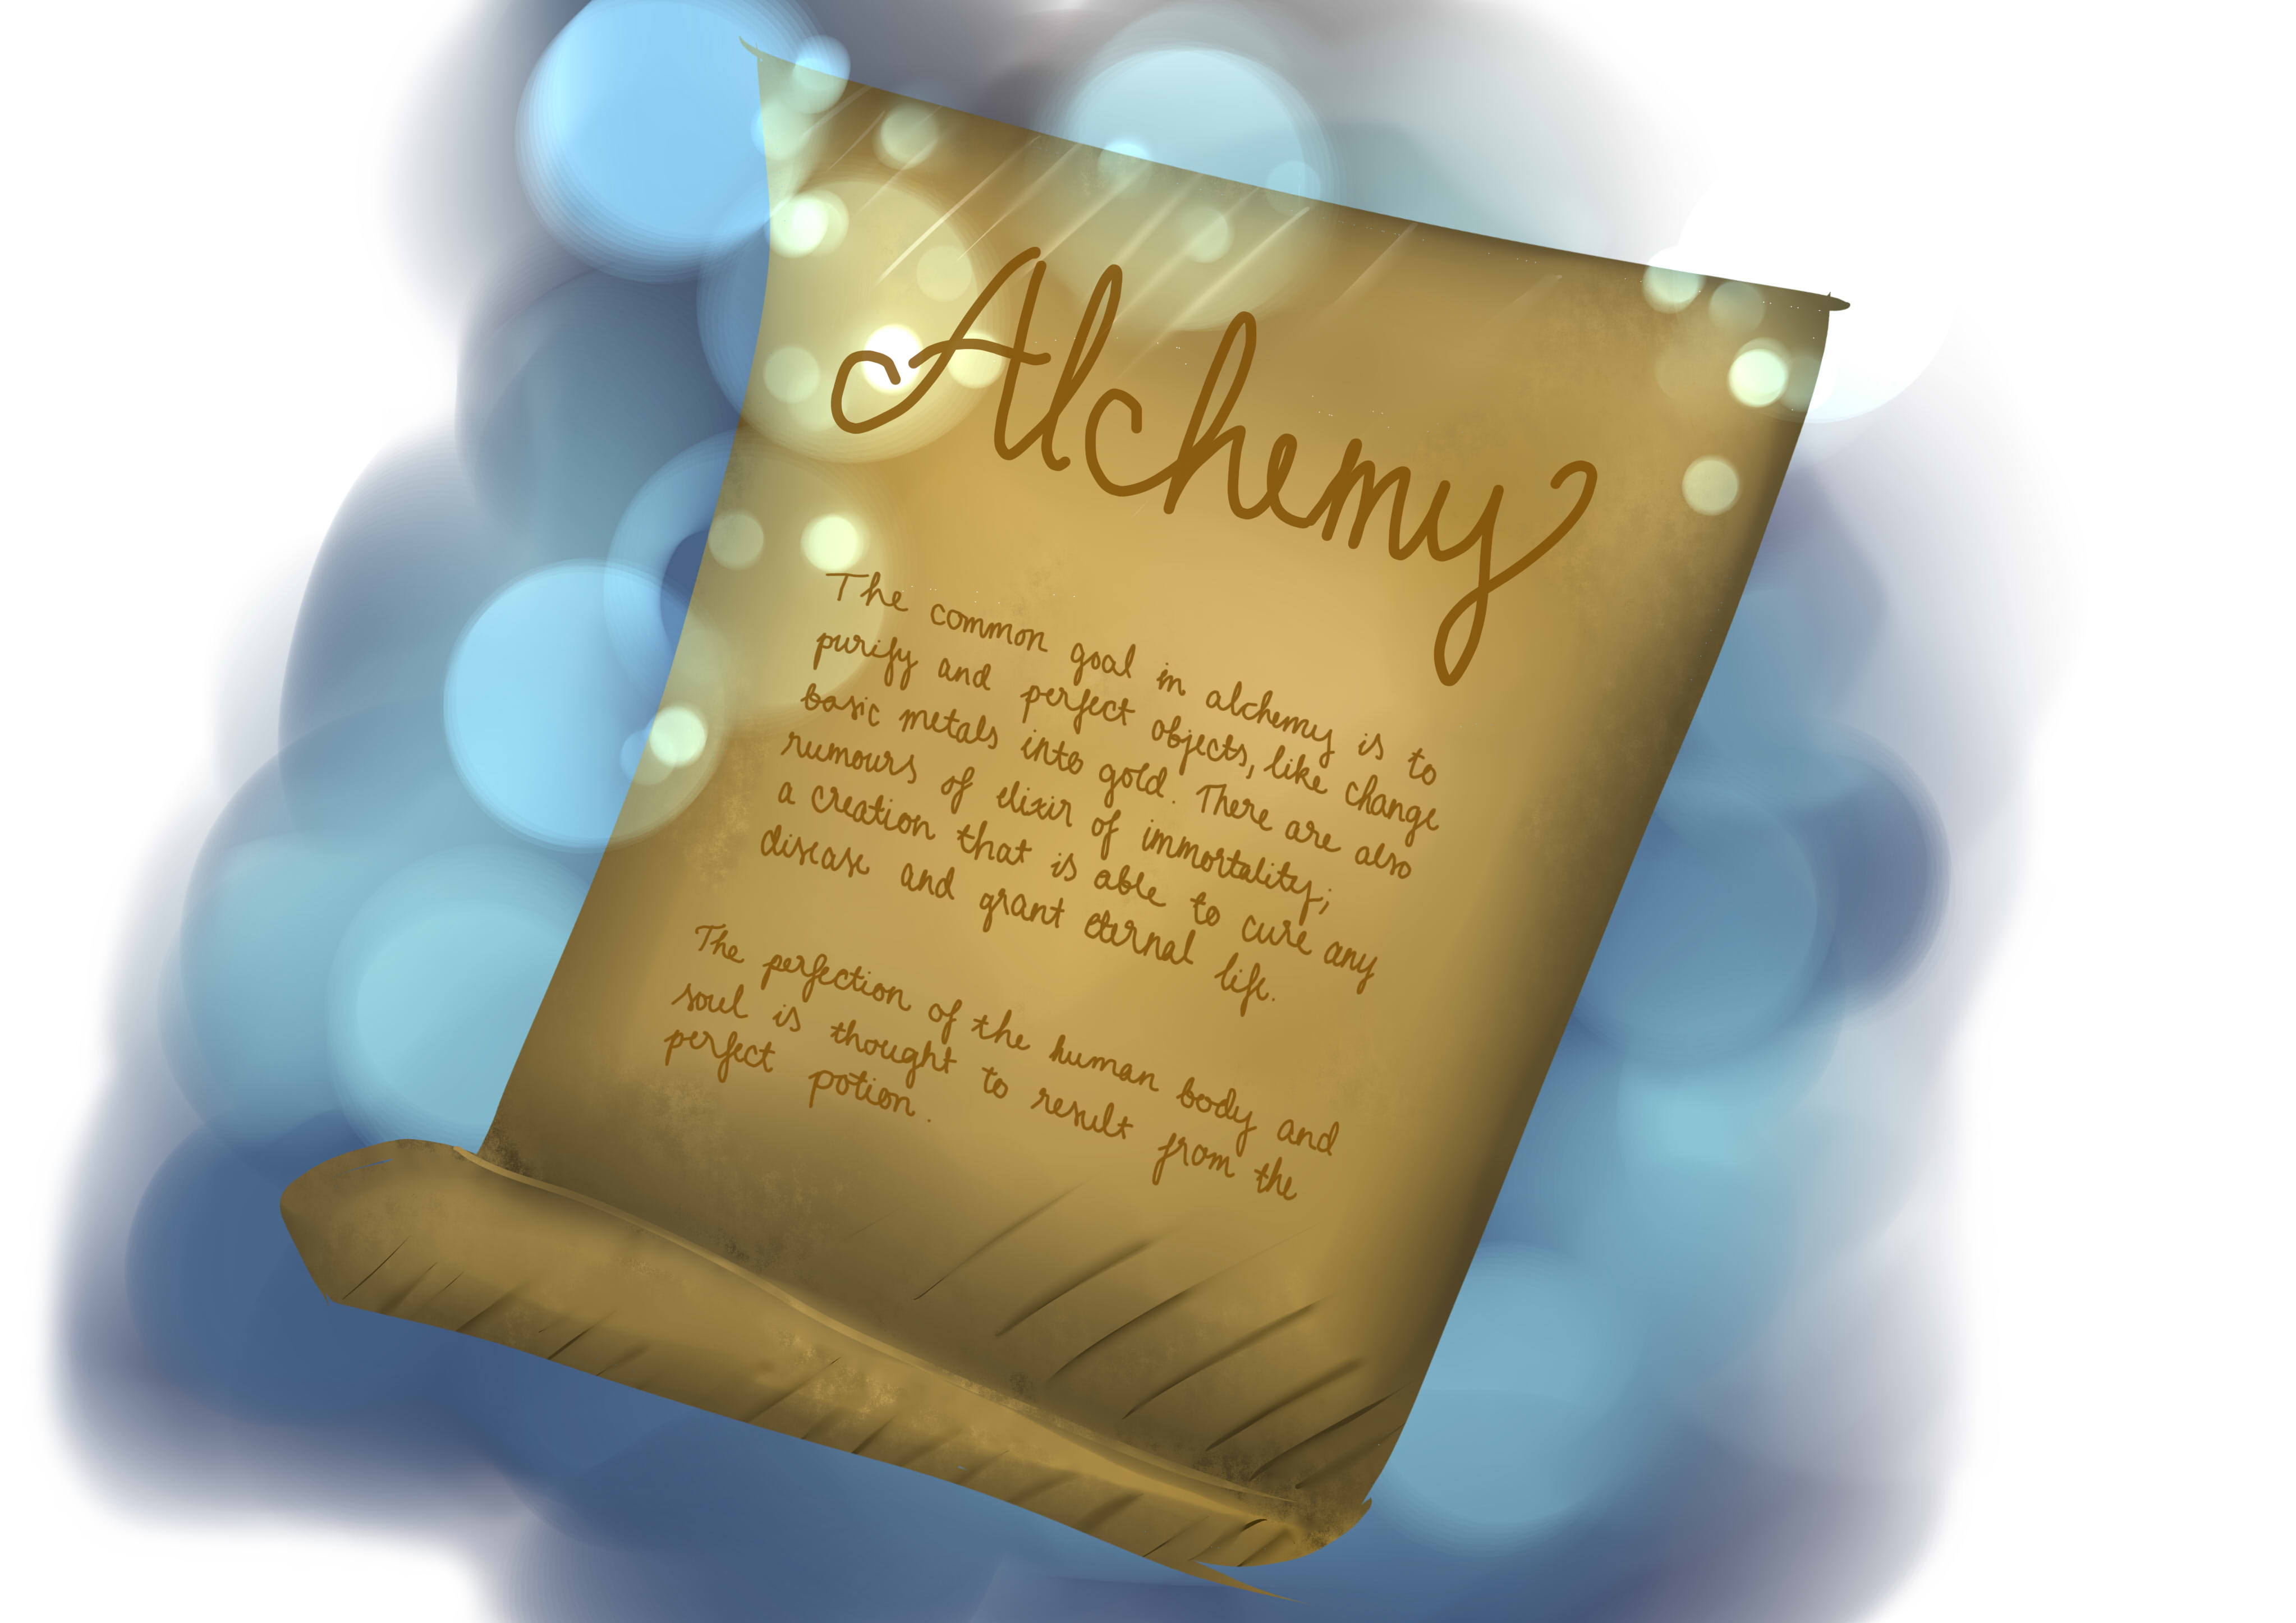 Alchemy
The common goal in alchemy is to
purify and perfect objects, like change
basic metals into gold. There are also
rumours of elixir of immortality;
a creation that is able to cure any
disease and grant eternal life.
The perfection of the human body and
soul is thought to result from the
perfect potion.